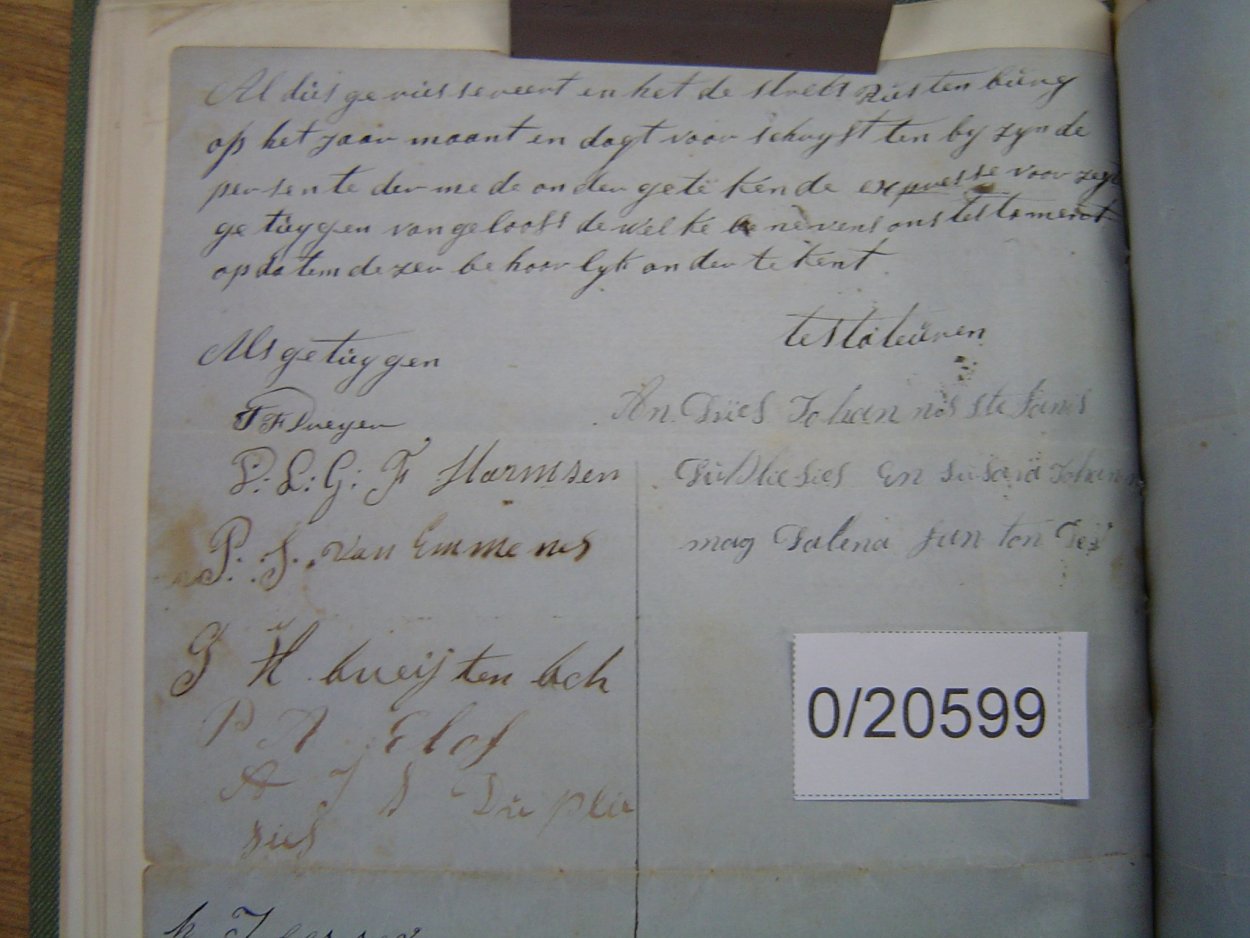 Al düs ge riesseveert en het de strekt Rüstenbürg
op het jaar maant en dagt voor schryft ten by zynde
persente der me de onder getë kende expresse voor zegt
ge tüygen van gelooff de welke be nevens ons testament
op datem dezer be hoor lyk onder te kent
Als getüygen
testateüren
An Dries Johannes stefanes
P: L: G: F Harmsen
Dü Pliesies En süsana Johan
P. J. van Emmenes
mag Dalena
G H breijten bch
0/20599
P A Elof
A J S Du plie
sies